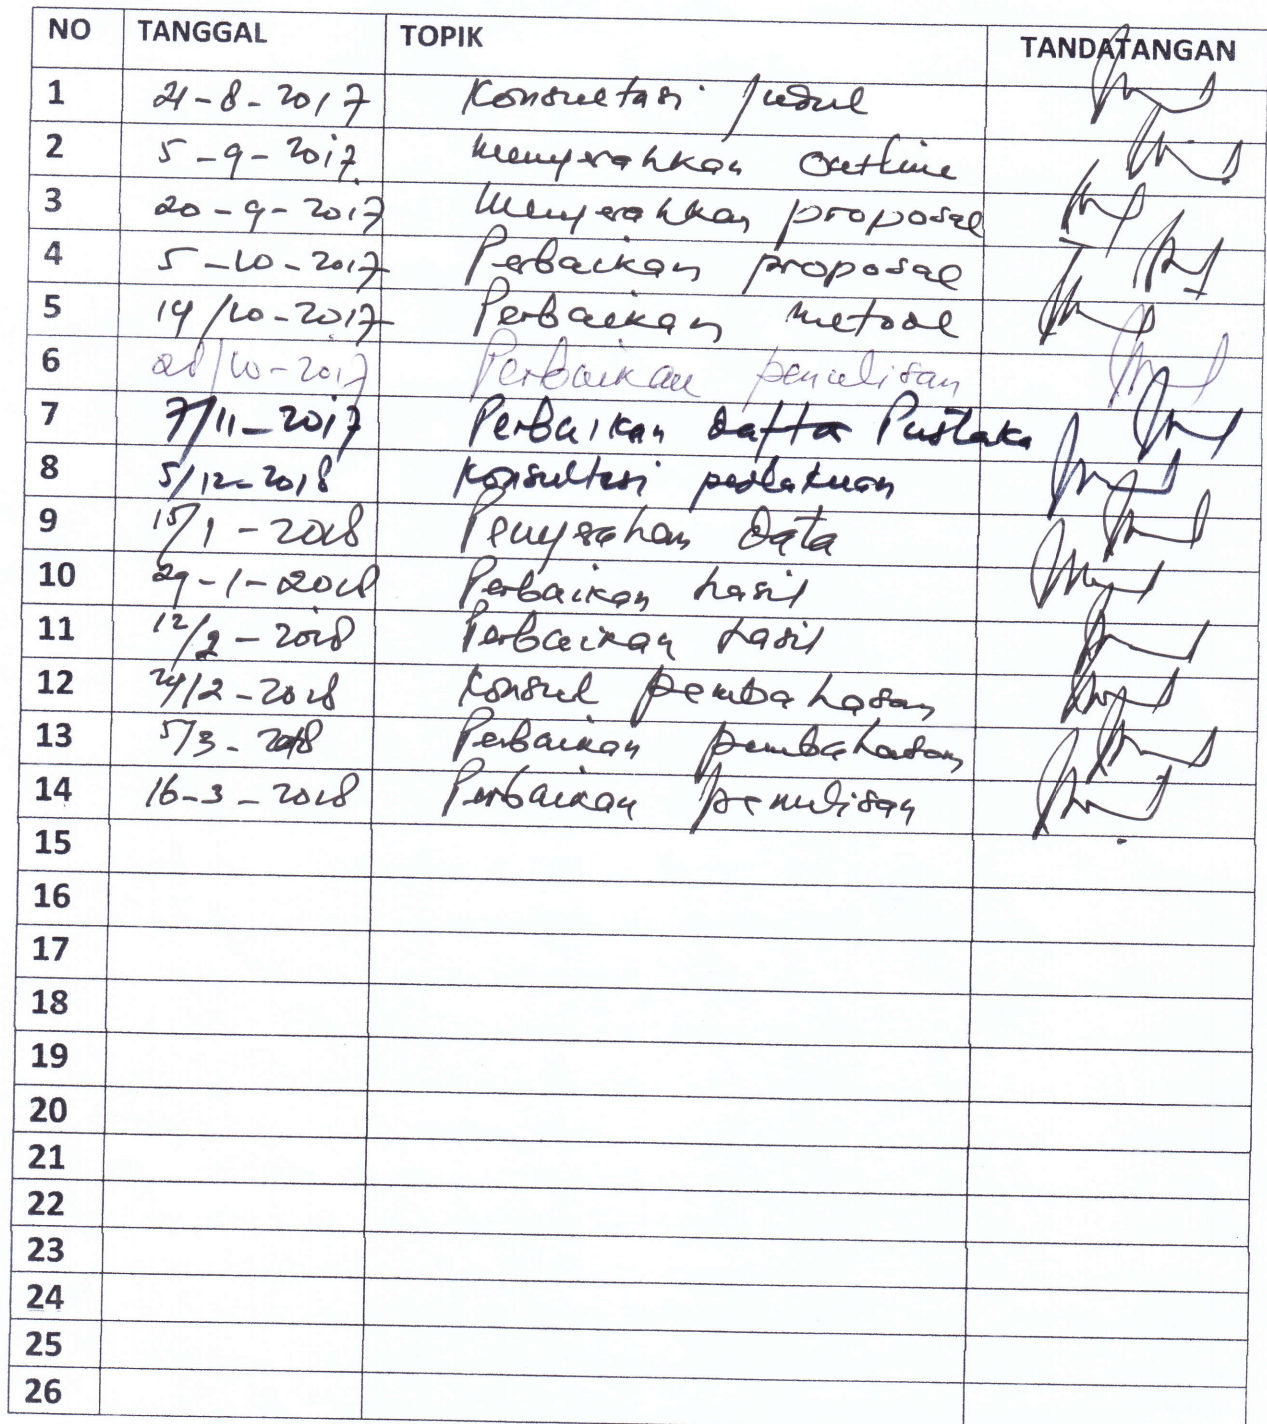 NO TANGGAL TOPIK TANDATANGAN
1 21-8-2017 Konsultasi judul
2 5-9-2017 Menyerahkan Outline
3 20-9-2017 Menyerahkan proposal
4 5-10-2017 Perbaikan proposal
5 14/10-2017 Perbaikan metode
6 28/10-2017 Perbaikan penulisan
7 7/11-2017 Perbaikan Dafta Pustaka
8 5/12-2018 Konsultasi perlakuan
9 15/1-2018 Penyerahan Data
10 29-1-2018 Perbaikan hasil
11 12/2-2018 Perbaikan hasil
12 24/2-2018 Konsul pembahasan
13 5/3-2018 Perbaikan pembahasan
14 16-3-2018 Perbaikan penulisan
15
16
17
18
19
20
21
22
23
24
25
26